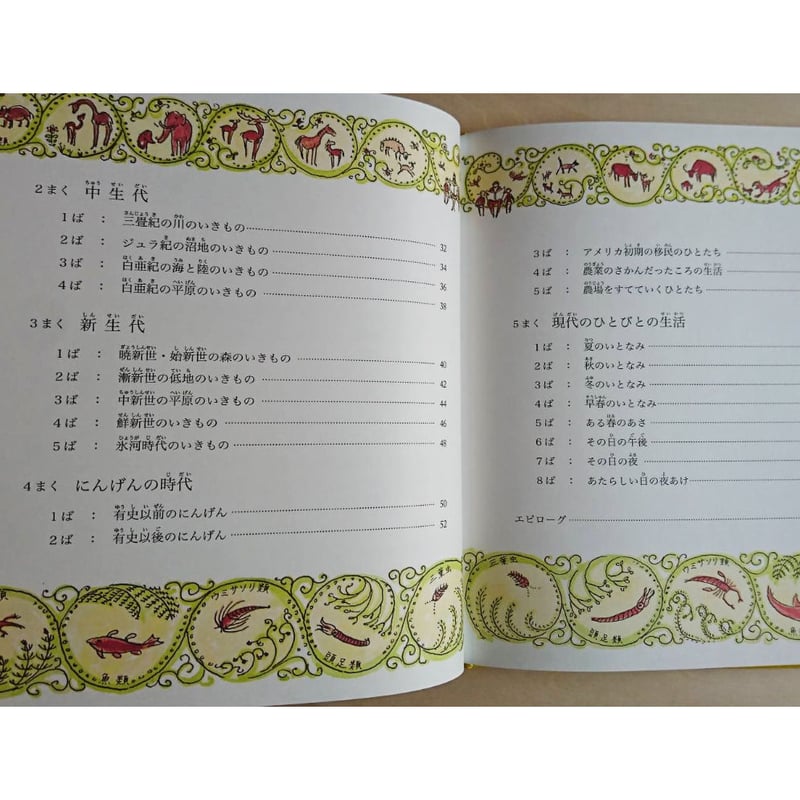 2まく 中生代
1ば : 三畳紀の川のいきもの 32
2ば : ジュラ紀の沼地のいきもの 34
3ば : 白亜紀の海と陸のいきもの 36
4ば : 白亜紀の平原のいきもの 38
3まく 新生代
1ば : 暁新世・始新世の森のいきもの 40
2ば : 漸新世の低地のいきもの 42
3ば : 中新世の平原のいきもの 44
4ば : 鮮新世のいきもの 46
5ば : 氷河時代のいきもの 48
4まく にんげんの時代
1ば : 有史以前のにんげん 50
2ば : 有史以後のにんげん 52
ウミサソリ類
三葉虫
魚類
頭足類
3ば : アメリカ初期の移民のひとたち
4ば : 農業のさかんだったころの生活
5ば : 農場をすてていくひとたち
5まく 現代のひとびとの生活
1ば : 夏のいとなみ
2ば : 秋のいとなみ
3ば : 冬のいとなみ
4ば : 早春のいとなみ
5ば : ある春のあさ
6ば : その日の午後
7ば : その日の夜
8ば : あたらしい日の夜あけ
エピローグ
三葉虫
ウミサソリ類
頭足類